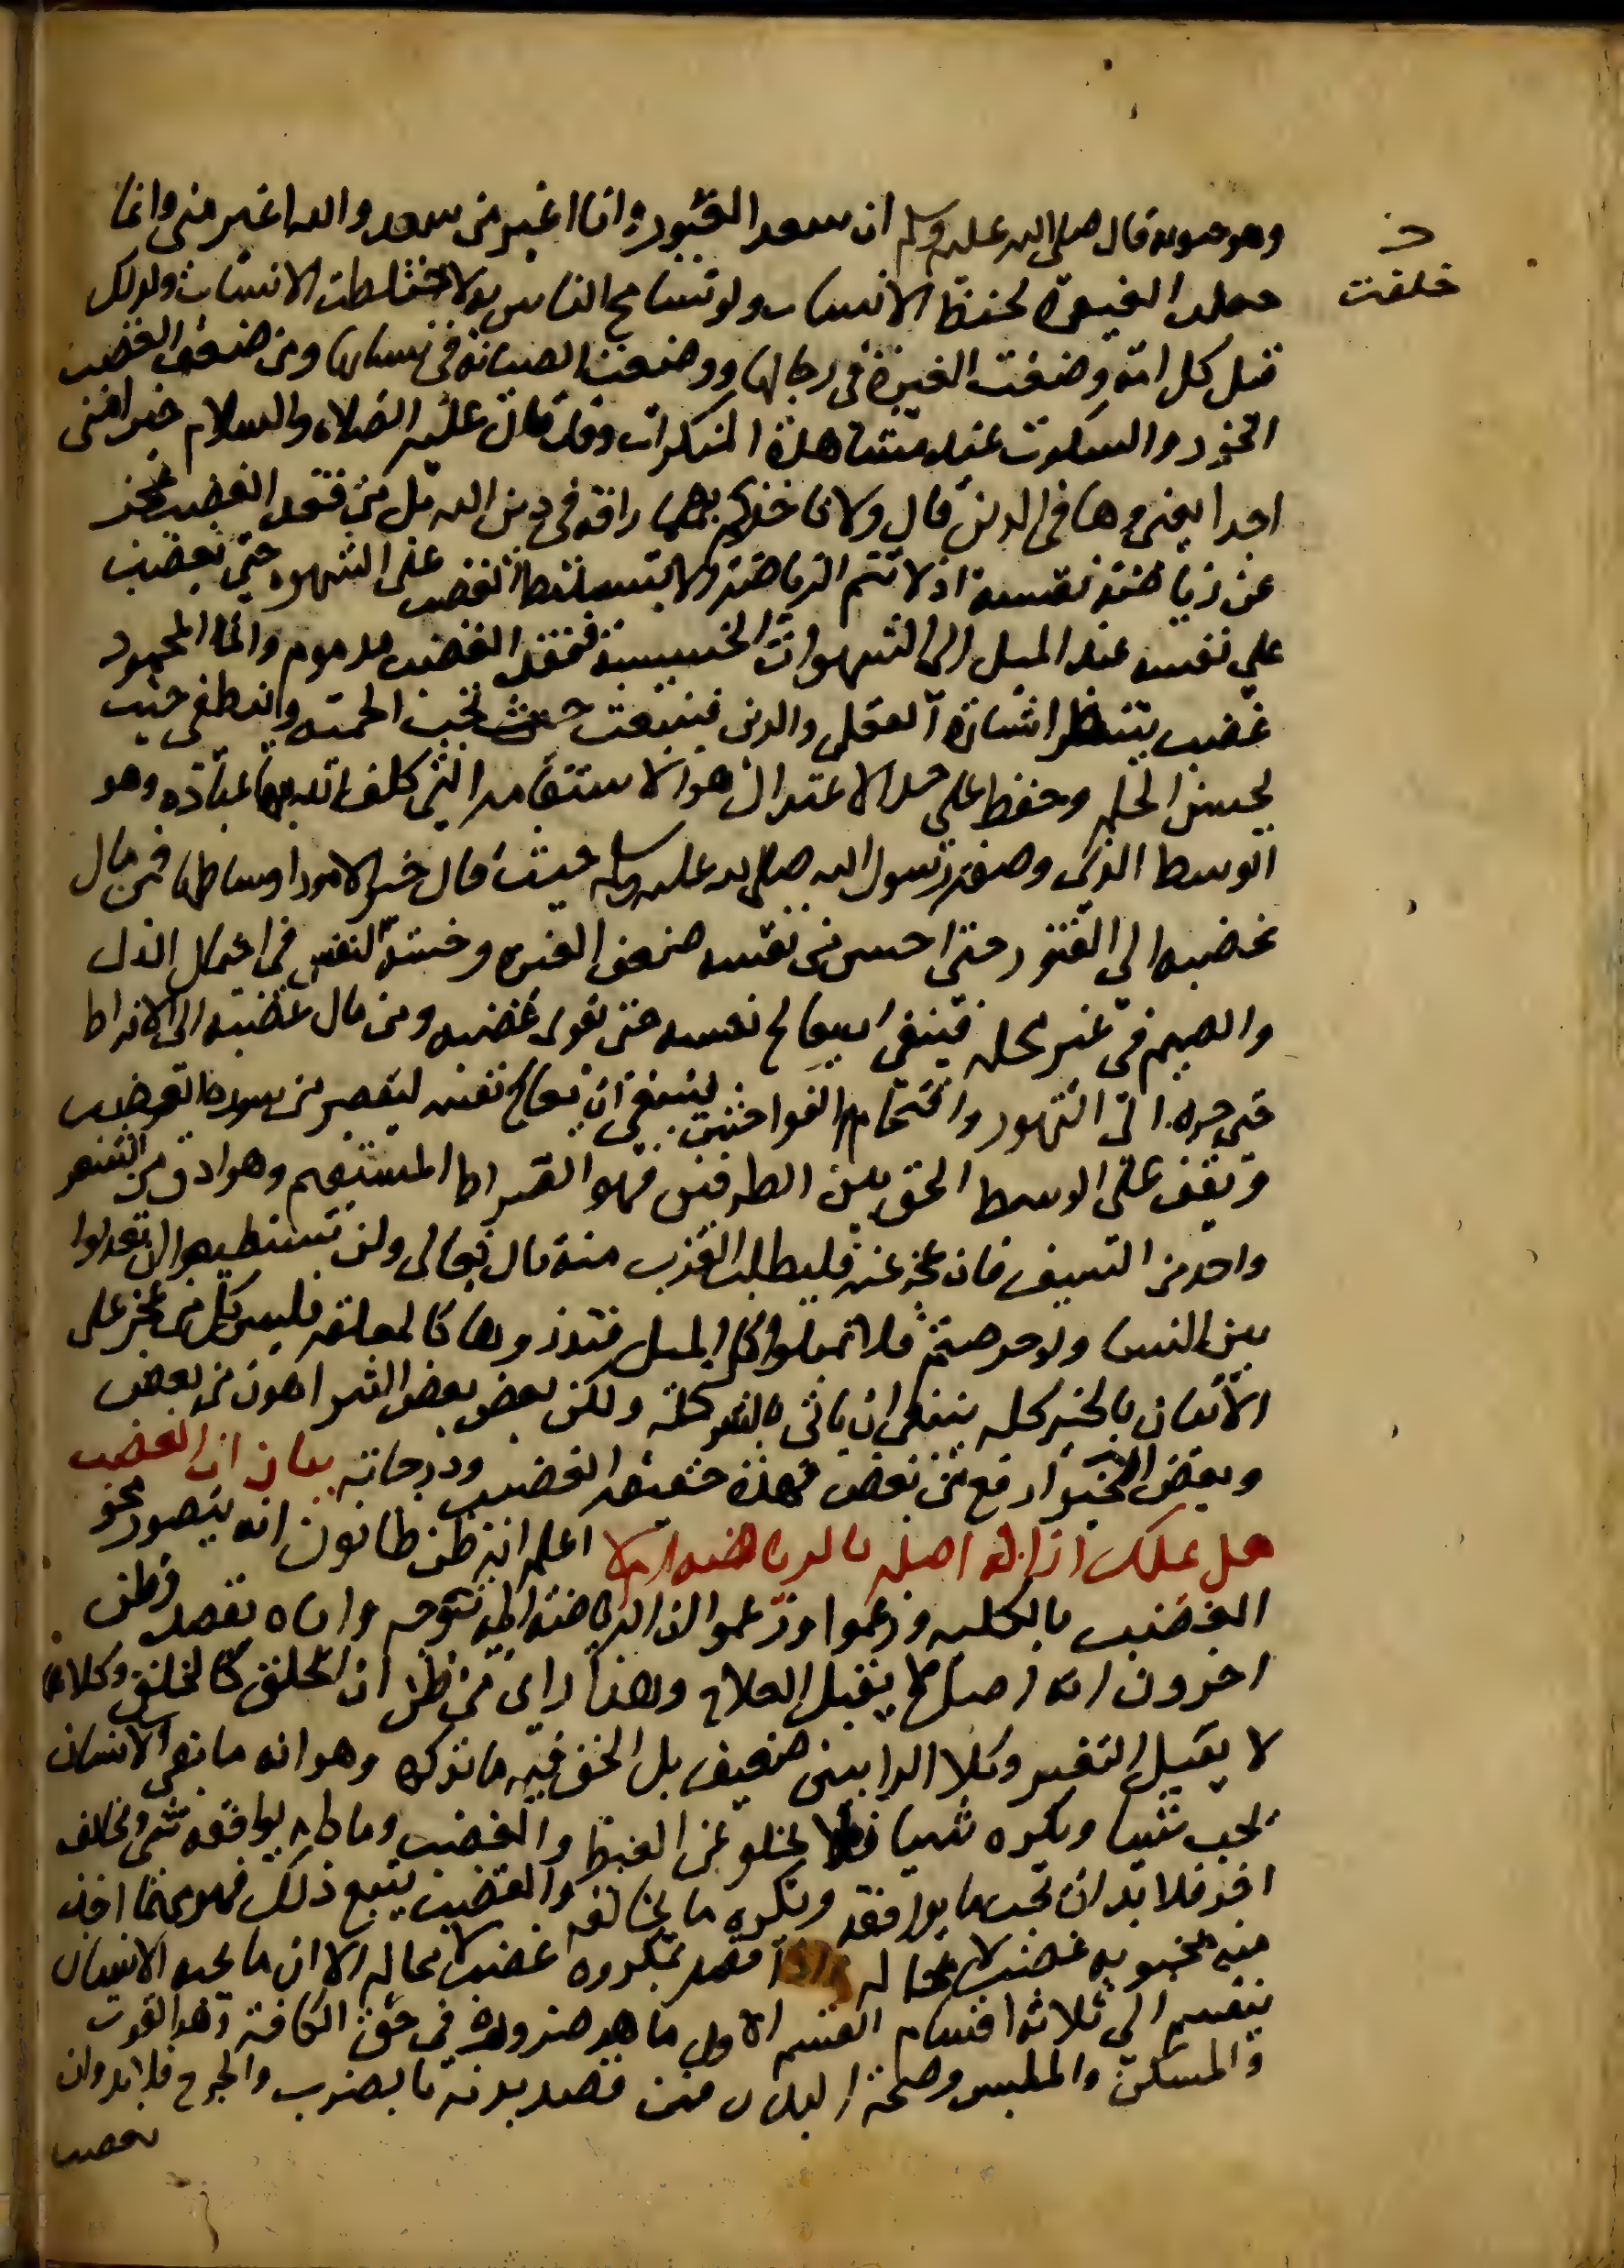 خ
خلقت
وهو صونه قال صلى الله عليه وسلم ان سعد الغيور وانا اغير من سعد والله اغير منى وانما
حملت الغيرة لحفظ الانساب ولو تسامح الناس بولا ختلطت الانساب ولذلك
قيل كل امة وضعت الغيرة فى رجالها ووضعت الصيانة فى نسائها ومن ضعف الغضب
الخور والسكوت عند مشاهدة المنكرات وقد قال عليه الصلاة والسلام خير امتى
احدا يعنى وها فى الدين قال ولا تاخذكم بهما رافة فى دين الله بل من فقد الغضب عجز
عن رياضة نفسه اذ لا تتم الرياضة الا بتسليط الغضب على الشهوه حتى يغضب
على نفسه عند الميل الى الشهوات الخسيسة ففقد الغضب مذموم وانما المحمود
غضب ينتظر اشارة العقل والدين فينبعث حيث تجب الحمية وانطفى حيث
يحسن الحلم وحفظ على حد الاعتدال هو الاستقامه التى كلف الله بها عباده وهو
الوسط الذى وصفه رسول الله صلى الله عليه وسلم حيث قال خير الامور اوساطها فمن مال
غضبه الى الفتور حتى احس من نفسه ضعف الغيره وخسة النفس فى احتمال الذل
والضيم فى غير محله فينبغى ان يعالج نفسه حتى يقوى غضبه ومن مال غضبه الى الافراط
حتى جره الى التهور واقتحام الفواحش ينبغى ان يعالج نفسه ليقصر من سورة الغضب
ويقف على الوسط الحق بين الطرفين فهو الصراط المستقيم وهو ادق من الشعر
واحد من السيف فان عجز عنه فليطلب القرب منه قال تعالى ولن تستطيعوا ان تعدلوا
بين النسا ولو حرصتم فلا تميلوا كل الميل فتذروها كالمعلقه فليس كل من عجز على
الاتيان بالخير كله ينبغى ان ياتى بالشر كله ولكن بعض بعض الشر اهون من بعض
وبعض الخير ارفع من بعض فهذه حقيقة الغضب ودرجاته بيان ان الغضب
هل يمكن ازالة اصله بالرياضه ام لا اعلم انه ظن ظانون انه يتصور محو
الغضب بالكليه وزعموا وزعموا ان الرياضة اليه تتوجه واياه تقصد وظن
اخرون انه اصل لا يقبل العلاج وهذا راى من ظن ان الخلق كالخلق وكلاهما
لا يقبل التغير وكلا الرايين ضعيف بل الحق فيه ما نذكره وهو انه ما بقى الانسان
يحب شيا ويكره شيا فلا يخلو عن الغيظ والغضب وما دام يوافقه شى ويخالفه
اخر فلا بد ان يحب ما يوافقه ويكره ما يخالفه والغضب يتبع ذلك فهو مهما اخذ
منه محبوبه غضب لا محاله واذا قصد بمكروه غضب لا محاله الا ان ما يحبه الانسان
ينقسم الى ثلاثة اقسام القسم الاول ما هو ضرورة فى حق الكافة وهو القوت
والمسكن والملبس وصحة البدن فمن قصد بدنه بالضرب والجرح فلا بد وان
يغضب